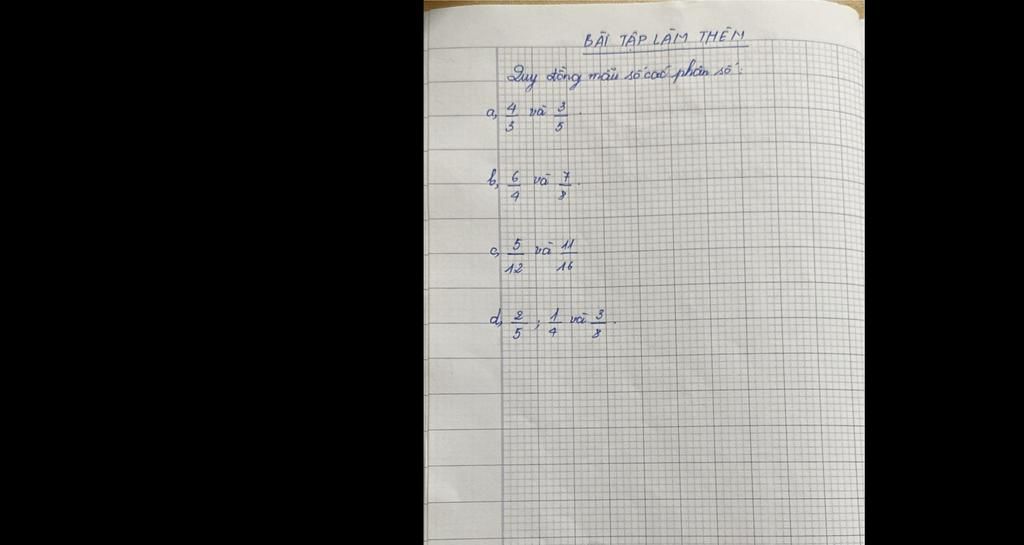 BÀI TẬP LÀM THÊM
Quy đồng mẫu số các phân số:
a, 4/3 và 3/5.
b, 6/4 và 7/8.
c, 5/12 và 11/16
d, 2/5 ; 1/4 và 3/8.